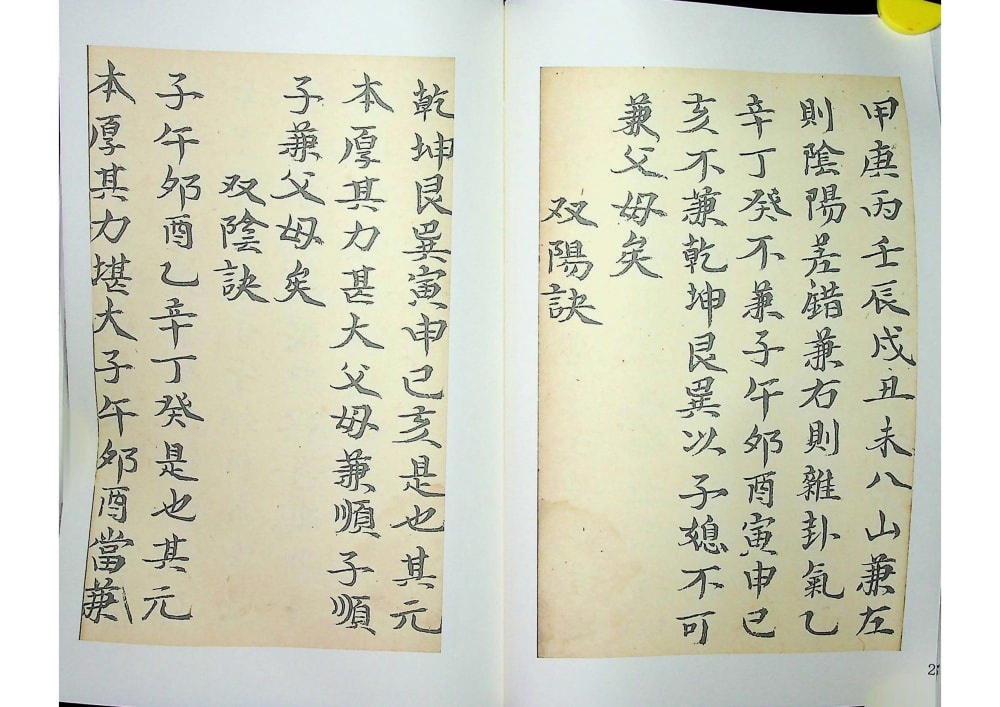 甲庚丙壬辰戌丑未八山兼左
則陰陽差錯兼右則雜卦氣乙
辛丁癸不兼子午夘酉寅申巳
亥不兼乾坤艮巽以子媳不可
兼父母矣
双陽訣
乾坤艮巽寅申巳亥是也其元
本厚其力甚大父母兼順子順
子兼父母矣
双陰訣
子午夘酉乙辛丁癸是也其元
本厚其力堪大子午夘酉當兼